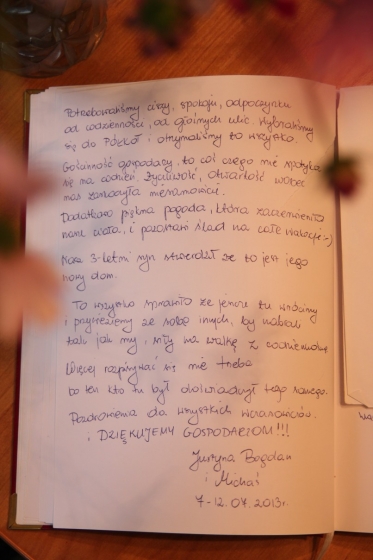 Potrzebowaliśmy ciszy, spokoju, odpoczynku
od codzienności, od głośnych ulic. Wybraliśmy
się do Półko i otrzymaliśmy to wszystko.
Gościnność gospodarzy, to coś czego nie spotyka
się na codzień. Życzliwość, otwartość wobec
nas zaskoczyła niesamowicie.
Dodatkowo piękna pogoda, która zaczerwieniła
nasze ciała, i pozostawi ślad na całe wakacje :-)
Nasz 3-letni syn stwierdził że to jest jego
nowy dom.
To wszystko sprawiło że jeszcze tu wrócimy
i przywieziemy ze sobą innych, by nabrali
tak jak my, siły na walkę z codziennością
Więcej rozpisywać się nie trzeba
bo ten kto tu był doświadczył tego samego.
Pozdrowienia do wszystkich wczasowiczów.
i DZIĘKUJEMY GOSPODARZOM!!!
Justyna Bogdan
i Michaś
7-12.07.2013r.